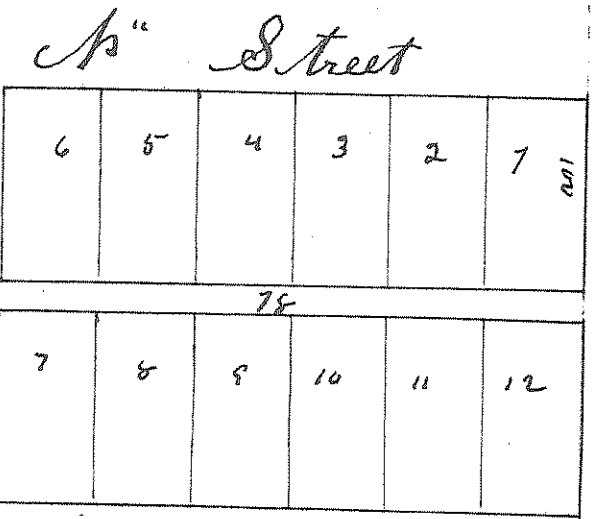 Street
6 5 4 3 2 1
78
7 8 9 10 11 12